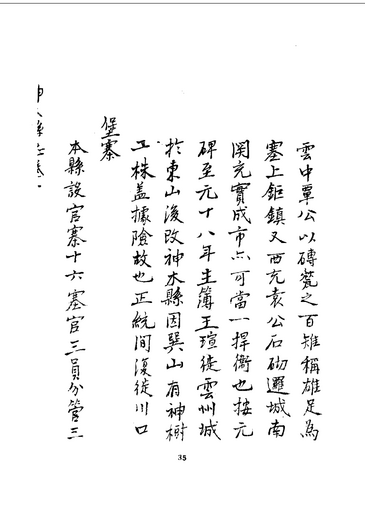 雲中覃公以磚甃之百雉稱雄足為
塞上鉅鎮又西充袁公石砌邏城南
関充實成市亦可當一捍衛也按元
碑至元十八年主簿王瑄徒雲州城
於東山後改神木縣因巽山有神樹
三株盖據險故也正統間復徙川口
堡寨
本縣設官寨十六寨官三員分管三
35